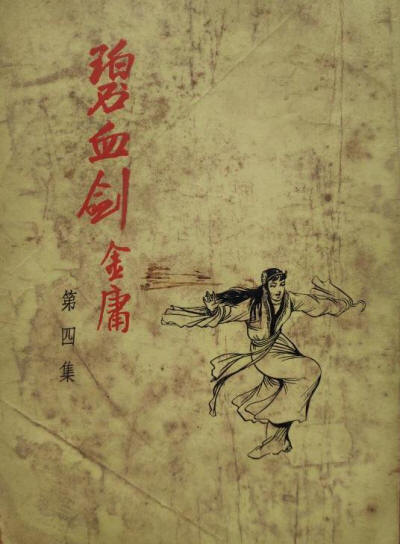 碧血剑
金庸
第四集